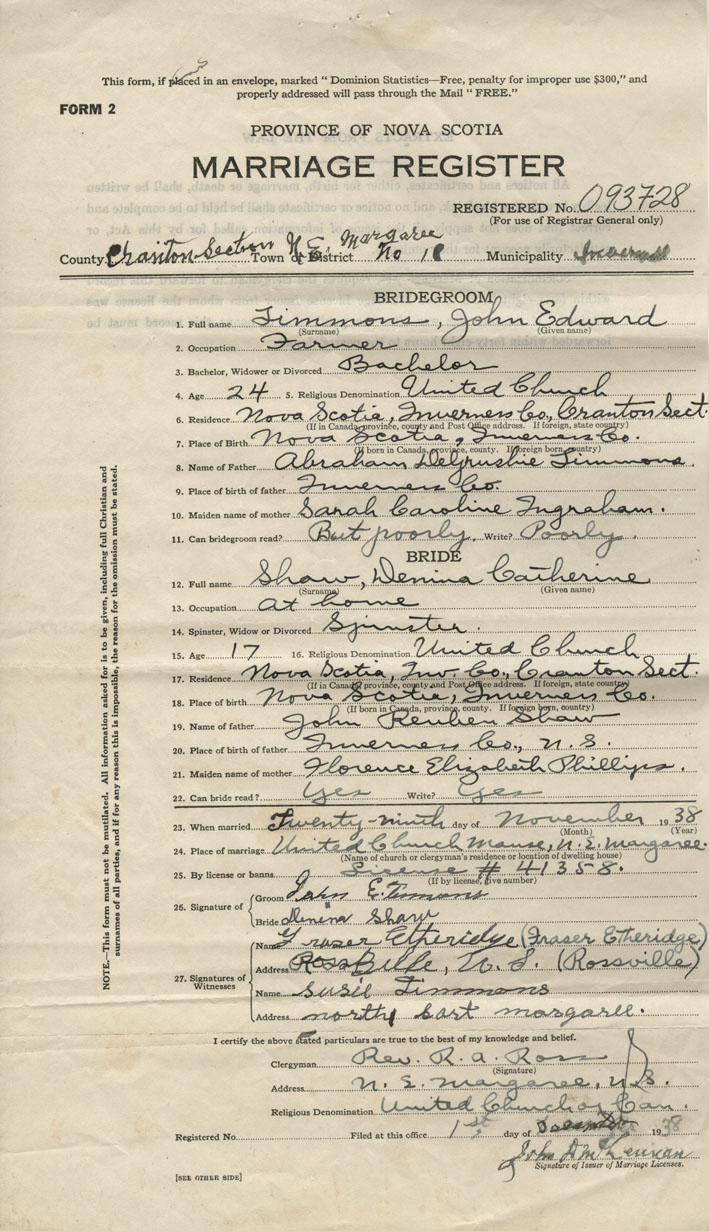 This form, if placed in an envelope, marked " Dominion Statistics—Free, penalty for improper use $300," and
properly addressed will pass through the Mail " FREE."
FORM 2
PROVINCE OF NOVA SCOTIA
MARRIAGE REGISTER
REGISTERED No. 093728
(For use of Registrar General only)
County Cranton Section Town or District N.E. Margaree No 18 Municipality Inverness
BRIDEGROOM
1. Full name Timmons, John Edward
(Surname) (Given name)
2. Occupation Farmer
3. Bachelor, Widower or Divorced Bachelor
4. Age 24 5. Religious Denomination United Church
6. Residence Nova Scotia, Inverness Co., Cranton Sect.
(If in Canada, province, county and Post Office address. If foreign, state country)
7. Place of Birth Nova Scotia, Inverness Co.
(If born in Canada, province, county. If foreign born, country)
8. Name of Father Abraham DeGrushie Timmons.
9. Place of birth of father Inverness Co.
10. Maiden name of mother Sarah Caroline Ingraham.
11. Can bridegroom read? But poorly. Write? Poorly.
BRIDE
12. Full name Shaw, Denina Catherine
(Surname) (Given name)
13. Occupation at home
14. Spinster, Widow or Divorced Spinster.
15. Age 17 16. Religious Denomination United Church
17. Residence Nova Scotia, Inv. Co., Cranton Sect.
(If in Canada, province, county and Post Office address. If foreign, state country)
18. Place of birth Nova Scotia, Inverness Co.
(If born in Canada, province, county. If foreign born, country)
19. Name of father John Reuben Shaw
20. Place of birth of father Inverness Co., N.S.
21. Maiden name of mother Florence Elizabeth Phillips.
22. Can bride read? Yes Write? Yes
23. When married Twenty-ninth day of November 1938
(Month) (Year)
24. Place of marriage United Church Manse, N.E. Margaree.
(Name of church or clergyman's residence or location of dwelling house)
25. By license or banns License # 41358.
(If by license, give number)
26. Signature of
Groom John E. Timmons
Bride Denina Shaw
27. Signatures of Witnesses
Name Fraser Etheridge (Fraser Etheridge)
Address Rossville, N.S. (Rossville)
Name Susie Timmons
Address north East margaree.
I certify the above stated particulars are true to the best of my knowledge and belief.
Clergyman Rev. R. A. Ross
(Signature)
Address N. E. Margaree, N.S.
Religious Denomination United Church of Can.
Registered No. Filed at this office 1st day of December 1938
Signature of Issuer of Marriage Licenses.
[SEE OTHER SIDE]
NOTE.—This form must not be mutilated. All information asked for is to be given, including full Christian and
surnames of all parties, and if for any reason this is impossible, the reason for the omission must be stated.